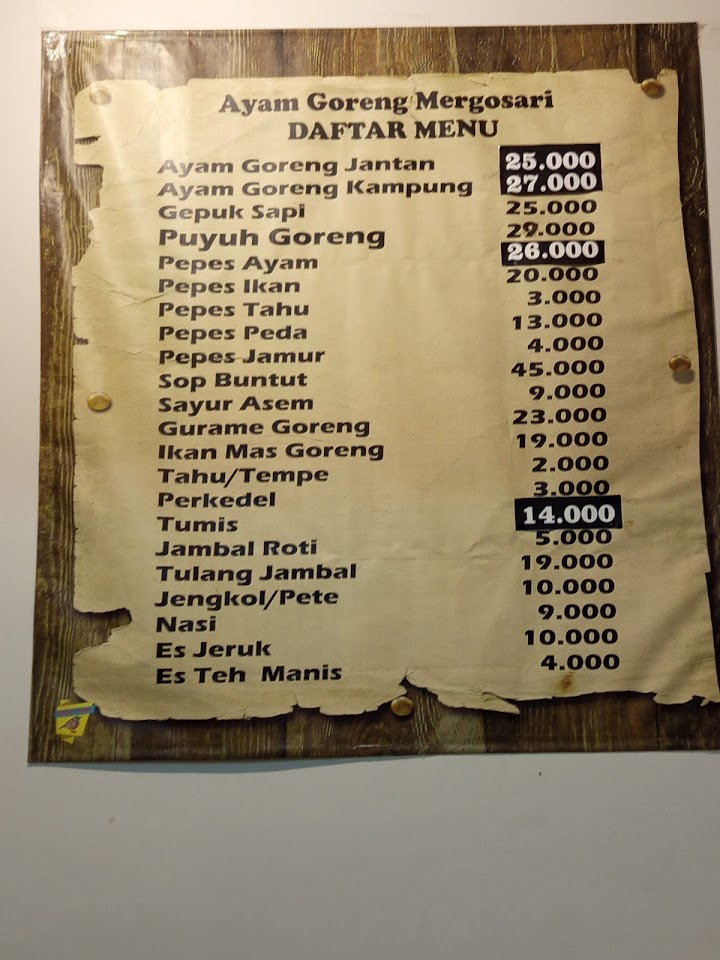 Ayam Goreng Mergosari
DAFTAR MENU
Ayam Goreng Jantan 25.000
Ayam Goreng Kampung 27.000
Gepuk Sapi 25.000
Puyuh Goreng 29.000
Pepes Ayam 26.000
Pepes Ikan 20.000
Pepes Tahu 3.000
Pepes Peda 13.000
Pepes Jamur 4.000
Sop Buntut 45.000
Sayur Asem 9.000
Gurame Goreng 23.000
Ikan Mas Goreng 19.000
Tahu/Tempe 2.000
Perkedel 3.000
Tumis 14.000
Jambal Roti 5.000
Tulang Jambal 19.000
Jengkol/Pete 10.000
Nasi 9.000
Es Jeruk 10.000
Es Teh Manis 4.000